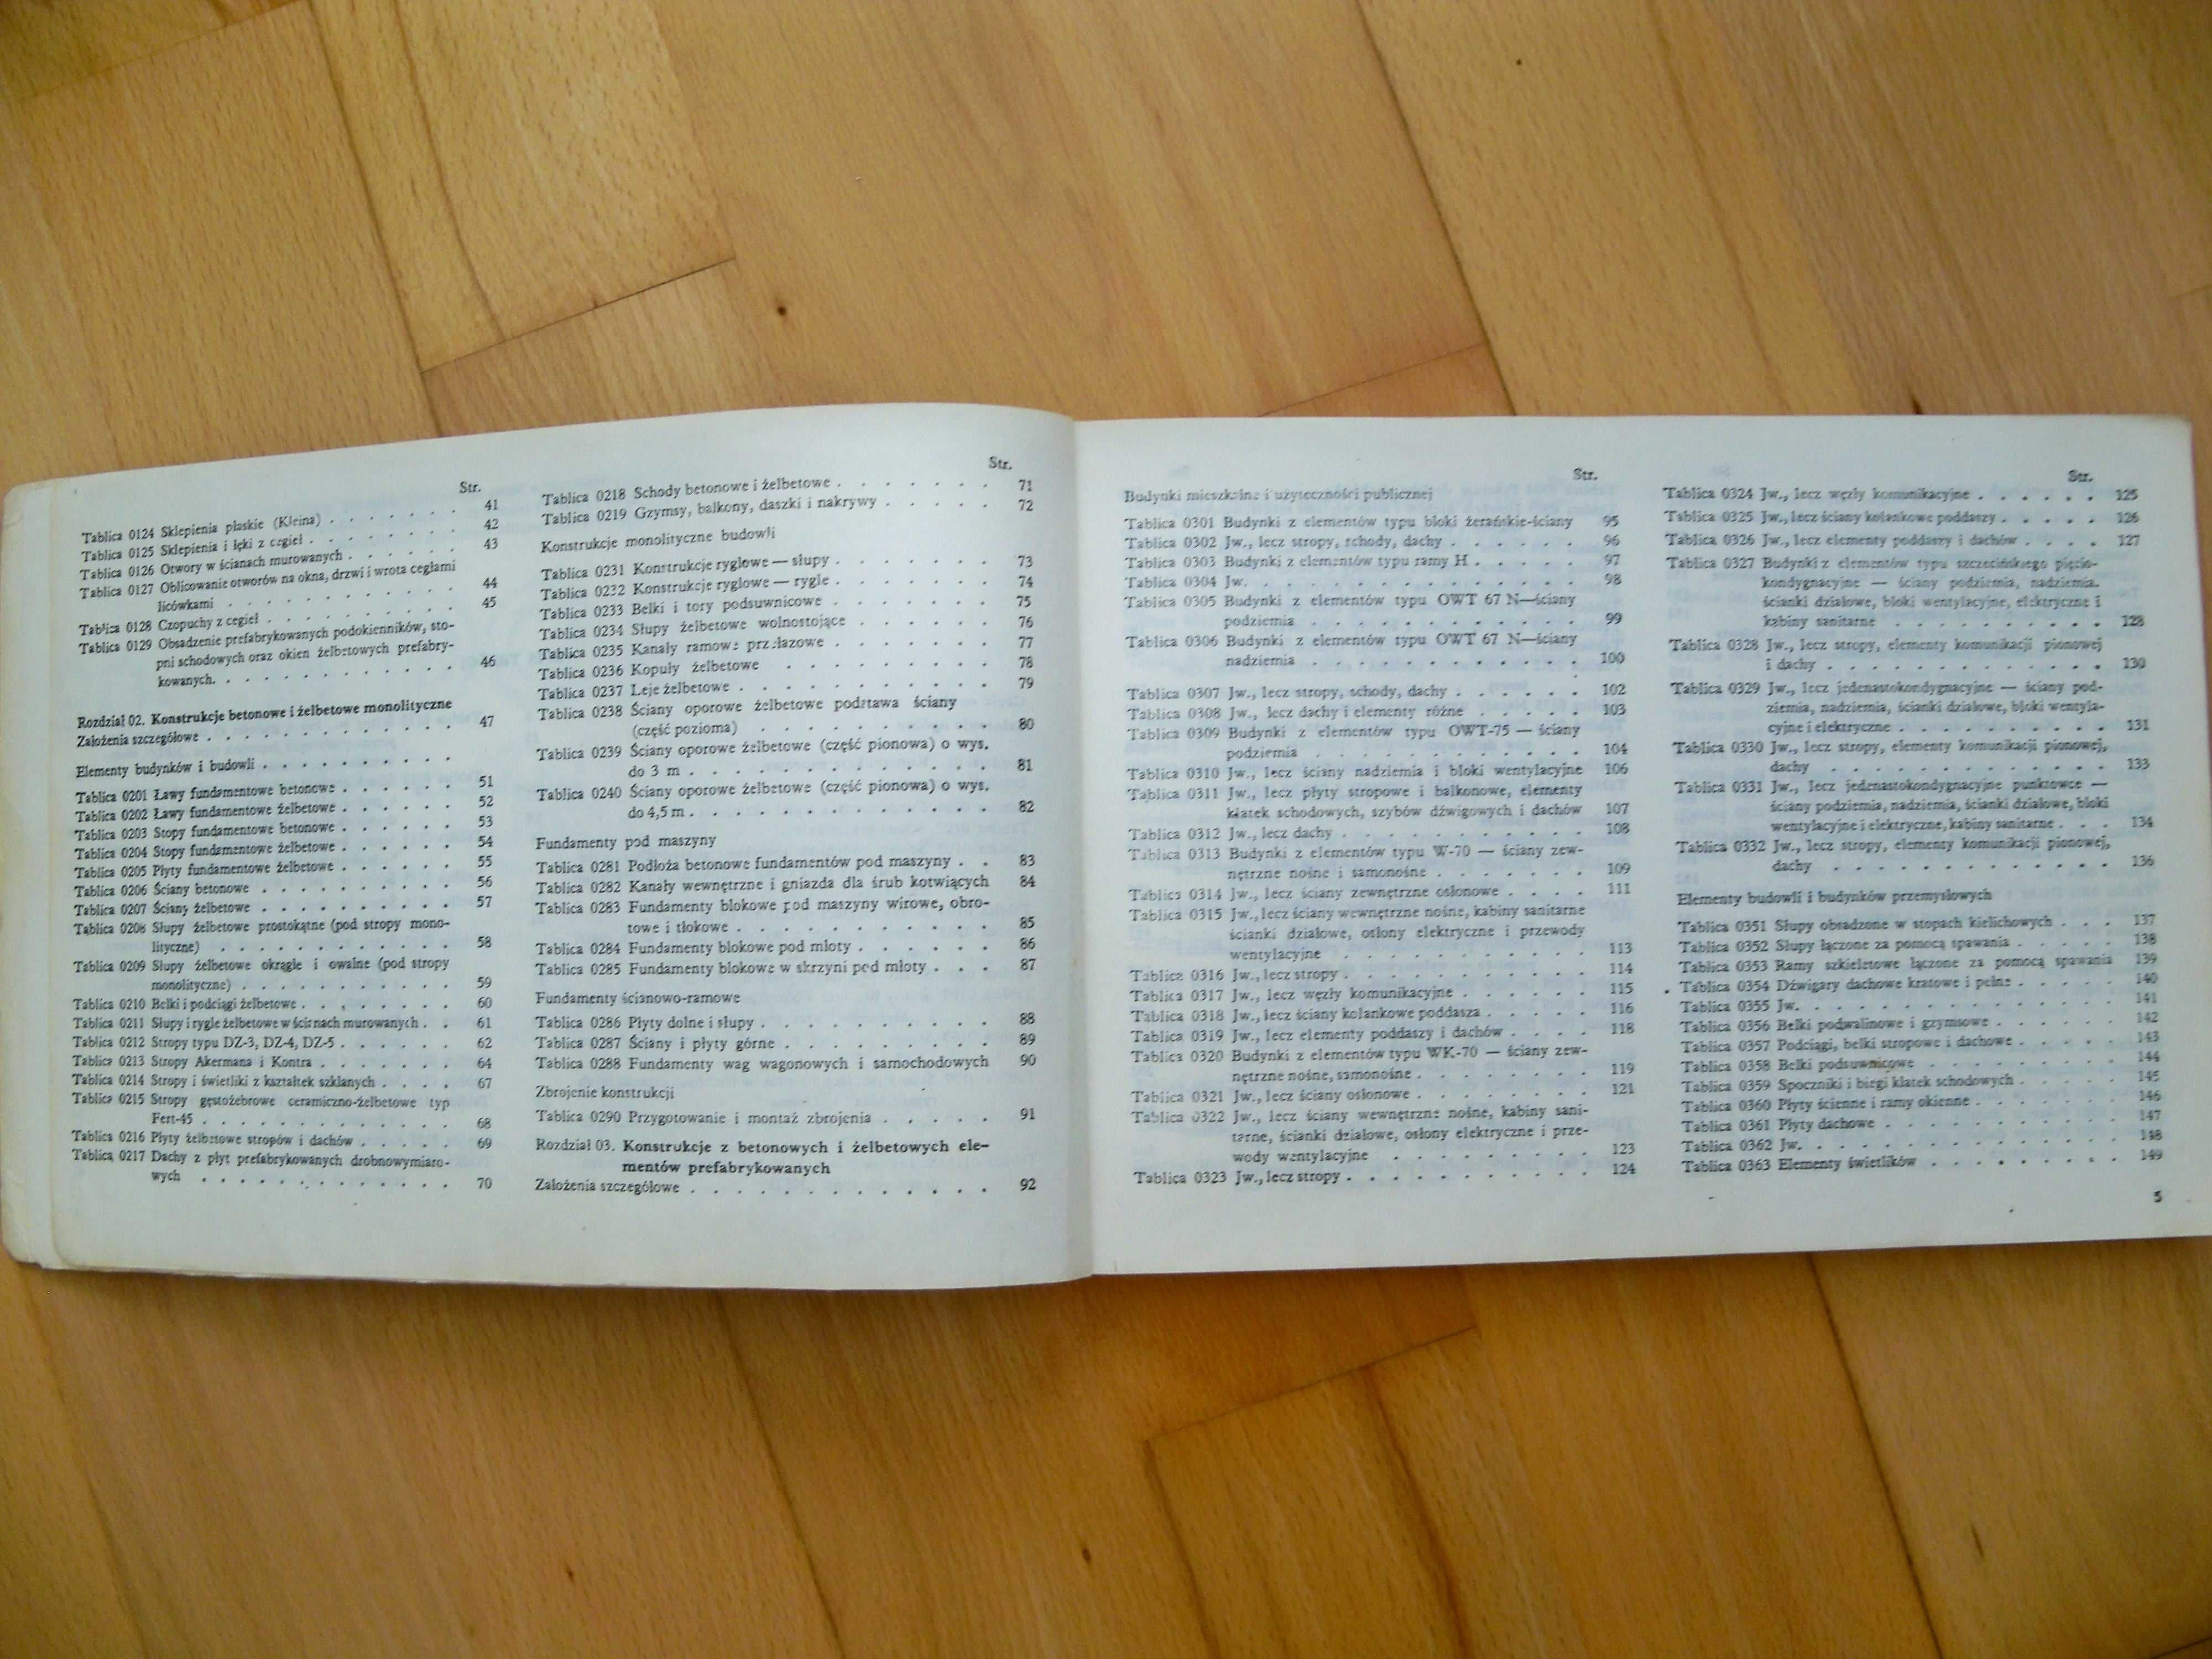 Str.
Tablica 0124 Sklepienia płaskie (Kleina) . . . . . . . 41
Tablica 0125 Sklepienia i łęki z cegieł . . . . . . . . 42
Tablica 0126 Otwory w ścianach murowanych . . . . . . 43
Tablica 0127 Oblicowanie otworów na okna, drzwi i wrota cegłami
licówkami . . . . . . . . . . . . 44
Tablica 0128 Czopuchy z cegieł . . . . . . . . . . 45
Tablica 0129 Obsadzenie prefabrykowanych podokienników, sto-
pni schodowych oraz okien żelbetowych prefabry-
kowanych. . . . . . . . . . . . . 46
Rozdział 02. Konstrukcje betonowe i żelbetowe monolityczne
Założenia szczegółowe . . . . . . . . . . . . 47
Elementy budynków i budowli . . . . . . . . . .
Tablica 0201 Ławy fundamentowe betonowe . . . . . . 51
Tablica 0202 Ławy fundamentowe żelbetowe . . . . . . 52
Tablica 0203 Stopy fundamentowe betonowe . . . . . . 53
Tablica 0204 Stopy fundamentowe żelbetowe . . . . . . 54
Tablica 0205 Płyty fundamentowe żelbetowe . . . . . . 55
Tablica 0206 Ściany betonowe . . . . . . . . . . 56
Tablica 0207 Ściany żelbetowe . . . . . . . . . . 57
Tablica 0208 Słupy żelbetowe prostokątne (pod stropy mono-
lityczne) . . . . . . . . . . . . 58
Tablica 0209 Słupy żelbetowe okrągłe i owalne (pod stropy
monolityczne) . . . . . . . . . . . 59
Tablica 0210 Belki i podciągi żelbetowe . . . . . . . . 60
Tablica 0211 Słupy i rygle żelbetowe w ścianach murowanych . . 61
Tablica 0212 Stropy typu DZ-3, DZ-4, DZ-5 . . . . . . 62
Tablica 0213 Stropy Akermana i Kontra . . . . . . . 64
Tablica 0214 Stropy i świetliki z kształtek szklanych . . . . 67
Tablica 0215 Stropy gęstożebrowe ceramiczno-żelbetowe typ
Fert-45 . . . . . . . . . . . . . 68
Tablica 0216 Płyty żelbetowe stropów i dachów . . . . . 69
Tablica 0217 Dachy z płyt prefabrykowanych drobnowymiaro-
wych . . . . . . . . . . . . . 70
Str.
Tablica 0218 Schody betonowe i żelbetowe . . . . . . . 71
Tablica 0219 Gzymsy, balkony, daszki i nakrywy . . . . . 72
Konstrukcje monolityczne budowli
Tablica 0231 Konstrukcje ryglowe — słupy . . . . . . . 73
Tablica 0232 Konstrukcje ryglowe — rygle . . . . . . . 74
Tablica 0233 Belki i tory podsuwnicowe . . . . . . . 75
Tablica 0234 Słupy żelbetowe wolnostojące . . . . . . 76
Tablica 0235 Kanały ramowe przełazowe . . . . . . . 77
Tablica 0236 Kopuły żelbetowe . . . . . . . . . 78
Tablica 0237 Leje żelbetowe . . . . . . . . . . . 79
Tablica 0238 Ściany oporowe żelbetowe podstawa ściany
(część pozioma) . . . . . . . . . . 80
Tablica 0239 Ściany oporowe żelbetowe (część pionowa) o wys.
do 3 m . . . . . . . . . . . . . 81
Tablica 0240 Ściany oporowe żelbetowe (część pionowa) o wys.
do 4,5 m . . . . . . . . . . . . . 82
Fundamenty pod maszyny
Tablica 0281 Podłoża betonowe fundamentów pod maszyny . . 83
Tablica 0282 Kanały wewnętrzne i gniazda dla śrub kotwiących 84
Tablica 0283 Fundamenty blokowe pod maszyny wirowe, obro-
towe i tłokowe . . . . . . . . . . . 85
Tablica 0284 Fundamenty blokowe pod młoty . . . . . . 86
Tablica 0285 Fundamenty blokowe w skrzyni pod młoty . . . 87
Fundamenty ścianowo-ramowe
Tablica 0286 Płyty dolne i słupy . . . . . . . . . . 88
Tablica 0287 Ściany i płyty górne . . . . . . . . . 89
Tablica 0288 Fundamenty wag wagonowych i samochodowych 90
Zbrojenie konstrukcji
Tablica 0290 Przygotowanie i montaż zbrojenia . . . . . 91
Rozdział 03. Konstrukcje z betonowych i żelbetowych ele-
mentów prefabrykowanych
Założenia szczegółowe . . . . . . . . . . . . . 92
Str.
Budynki mieszkalne i użyteczności publicznej
Tablica 0301 Budynki z elementów typu bloki żerańskie-ściany 95
Tablica 0302 Jw., lecz stropy, schody, dachy . . . . . . 96
Tablica 0303 Budynki z elementów typu ramy H . . . . . 97
Tablica 0304 Jw. . . . . . . . . . . . . . . . 98
Tablica 0305 Budynki z elementów typu OWT 67 N—ściany
podziemia . . . . . . . . . . . . 99
Tablica 0306 Budynki z elementów typu OWT 67 N—ściany
nadziemia . . . . . . . . . . . . 100
Tablica 0307 Jw., lecz stropy, schody, dachy . . . . . . 102
Tablica 0308 Jw., lecz dachy i elementy różne . . . . . 103
Tablica 0309 Budynki z elementów typu OWT-75 — ściany
podziemia . . . . . . . . . . . . 104
Tablica 0310 Jw., lecz ściany nadziemia i bloki wentylacyjne 106
Tablica 0311 Jw., lecz płyty stropowe i balkonowe, elementy
klatek schodowych, szybów dźwigowych i dachów 107
Tablica 0312 Jw., lecz dachy . . . . . . . . . . . 108
Tablica 0313 Budynki z elementów typu W-70 — ściany zew-
nętrzne nośne i samonośne . . . . . . . 109
Tablica 0314 Jw., lecz ściany zewnętrzne osłonowe . . . . 111
Tablica 0315 Jw., lecz ściany wewnętrzne nośne, kabiny sanitarne
ścianki działowe, osłony elektryczne i przewody
wentylacyjne . . . . . . . . . . . 113
Tablica 0316 Jw., lecz stropy . . . . . . . . . . . 114
Tablica 0317 Jw., lecz węzły komunikacyjne . . . . . . 115
Tablica 0318 Jw., lecz ściany kolankowe poddasza . . . . . 116
Tablica 0319 Jw., lecz elementy poddaszy i dachów . . . . 118
Tablica 0320 Budynki z elementów typu WK-70 — ściany zew-
nętrzne nośne, samonośne . . . . . . . . 119
Tablica 0321 Jw., lecz ściany osłonowe . . . . . . . . 121
Tablica 0322 Jw., lecz ściany wewnętrzne nośne, kabiny sani-
tarne, ścianki działowe, osłony elektryczne i prze-
wody wentylacyjne . . . . . . . . . 123
Tablica 0323 Jw., lecz stropy . . . . . . . . . . . 124
Str.
Tablica 0324 Jw., lecz węzły komunikacyjne . . . . . . 125
Tablica 0325 Jw., lecz ściany kolankowe poddaszy . . . . . 126
Tablica 0326 Jw., lecz elementy poddaszy i dachów . . . . 127
Tablica 0327 Budynki z elementów typu szczecińskiego pięcio-
kondygnacyjne — ściany podziemia, nadziemia.
ścianki działowe, bloki wentylacyjne, elektryczne i
kabiny sanitarne . . . . . . . . . . 128
Tablica 0328 Jw., lecz stropy, elementy komunikacji pionowej
i dachy . . . . . . . . . . . . . 130
Tablica 0329 Jw., lecz jedenastokondygnacyjne — ściany pod-
ziemia, nadziemia, ścianki działowe, bloki wentyla-
cyjne i elektryczne . . . . . . . . . . 131
Tablica 0330 Jw., lecz stropy, elementy komunikacji pionowej,
dachy . . . . . . . . . . . . . 133
Tablica 0331 Jw., lecz jedenastokondygnacyjne punktowce —
ściany podziemia, nadziemia, ścianki działowe, bloki
wentylacyjne i elektryczne, kabiny sanitarne . . . 134
Tablica 0332 Jw., lecz stropy, elementy komunikacji pionowej,
dachy . . . . . . . . . . . . . 136
Elementy budowli i budynków przemysłowych
Tablica 0351 Słupy obsadzone w stopach kielichowych . . . 137
Tablica 0352 Słupy łączone za pomocą spawania . . . . . 138
Tablica 0353 Ramy szkieletowe łączone za pomocą spawania 139
Tablica 0354 Dźwigary dachowe kratowe i pełne . . . . . 140
Tablica 0355 Jw. . . . . . . . . . . . . . . 141
Tablica 0356 Belki podwalinowe i gzymsowe . . . . . . 142
Tablica 0357 Podciągi, belki stropowe i dachowe . . . . . 143
Tablica 0358 Belki podsuwnicowe . . . . . . . . . 144
Tablica 0359 Spoczniki i biegi klatek schodowych . . . . . 145
Tablica 0360 Płyty ścienne i ramy okienne . . . . . . . 146
Tablica 0361 Płyty dachowe . . . . . . . . . . . 147
Tablica 0362 Jw. . . . . . . . . . . . . . . 148
Tablica 0363 Elementy świetlików . . . . . . . . . 149
5